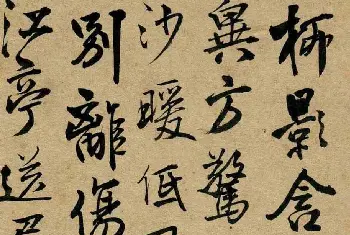 柳影含
異方驚
沙暖低
別離傷
江亭送